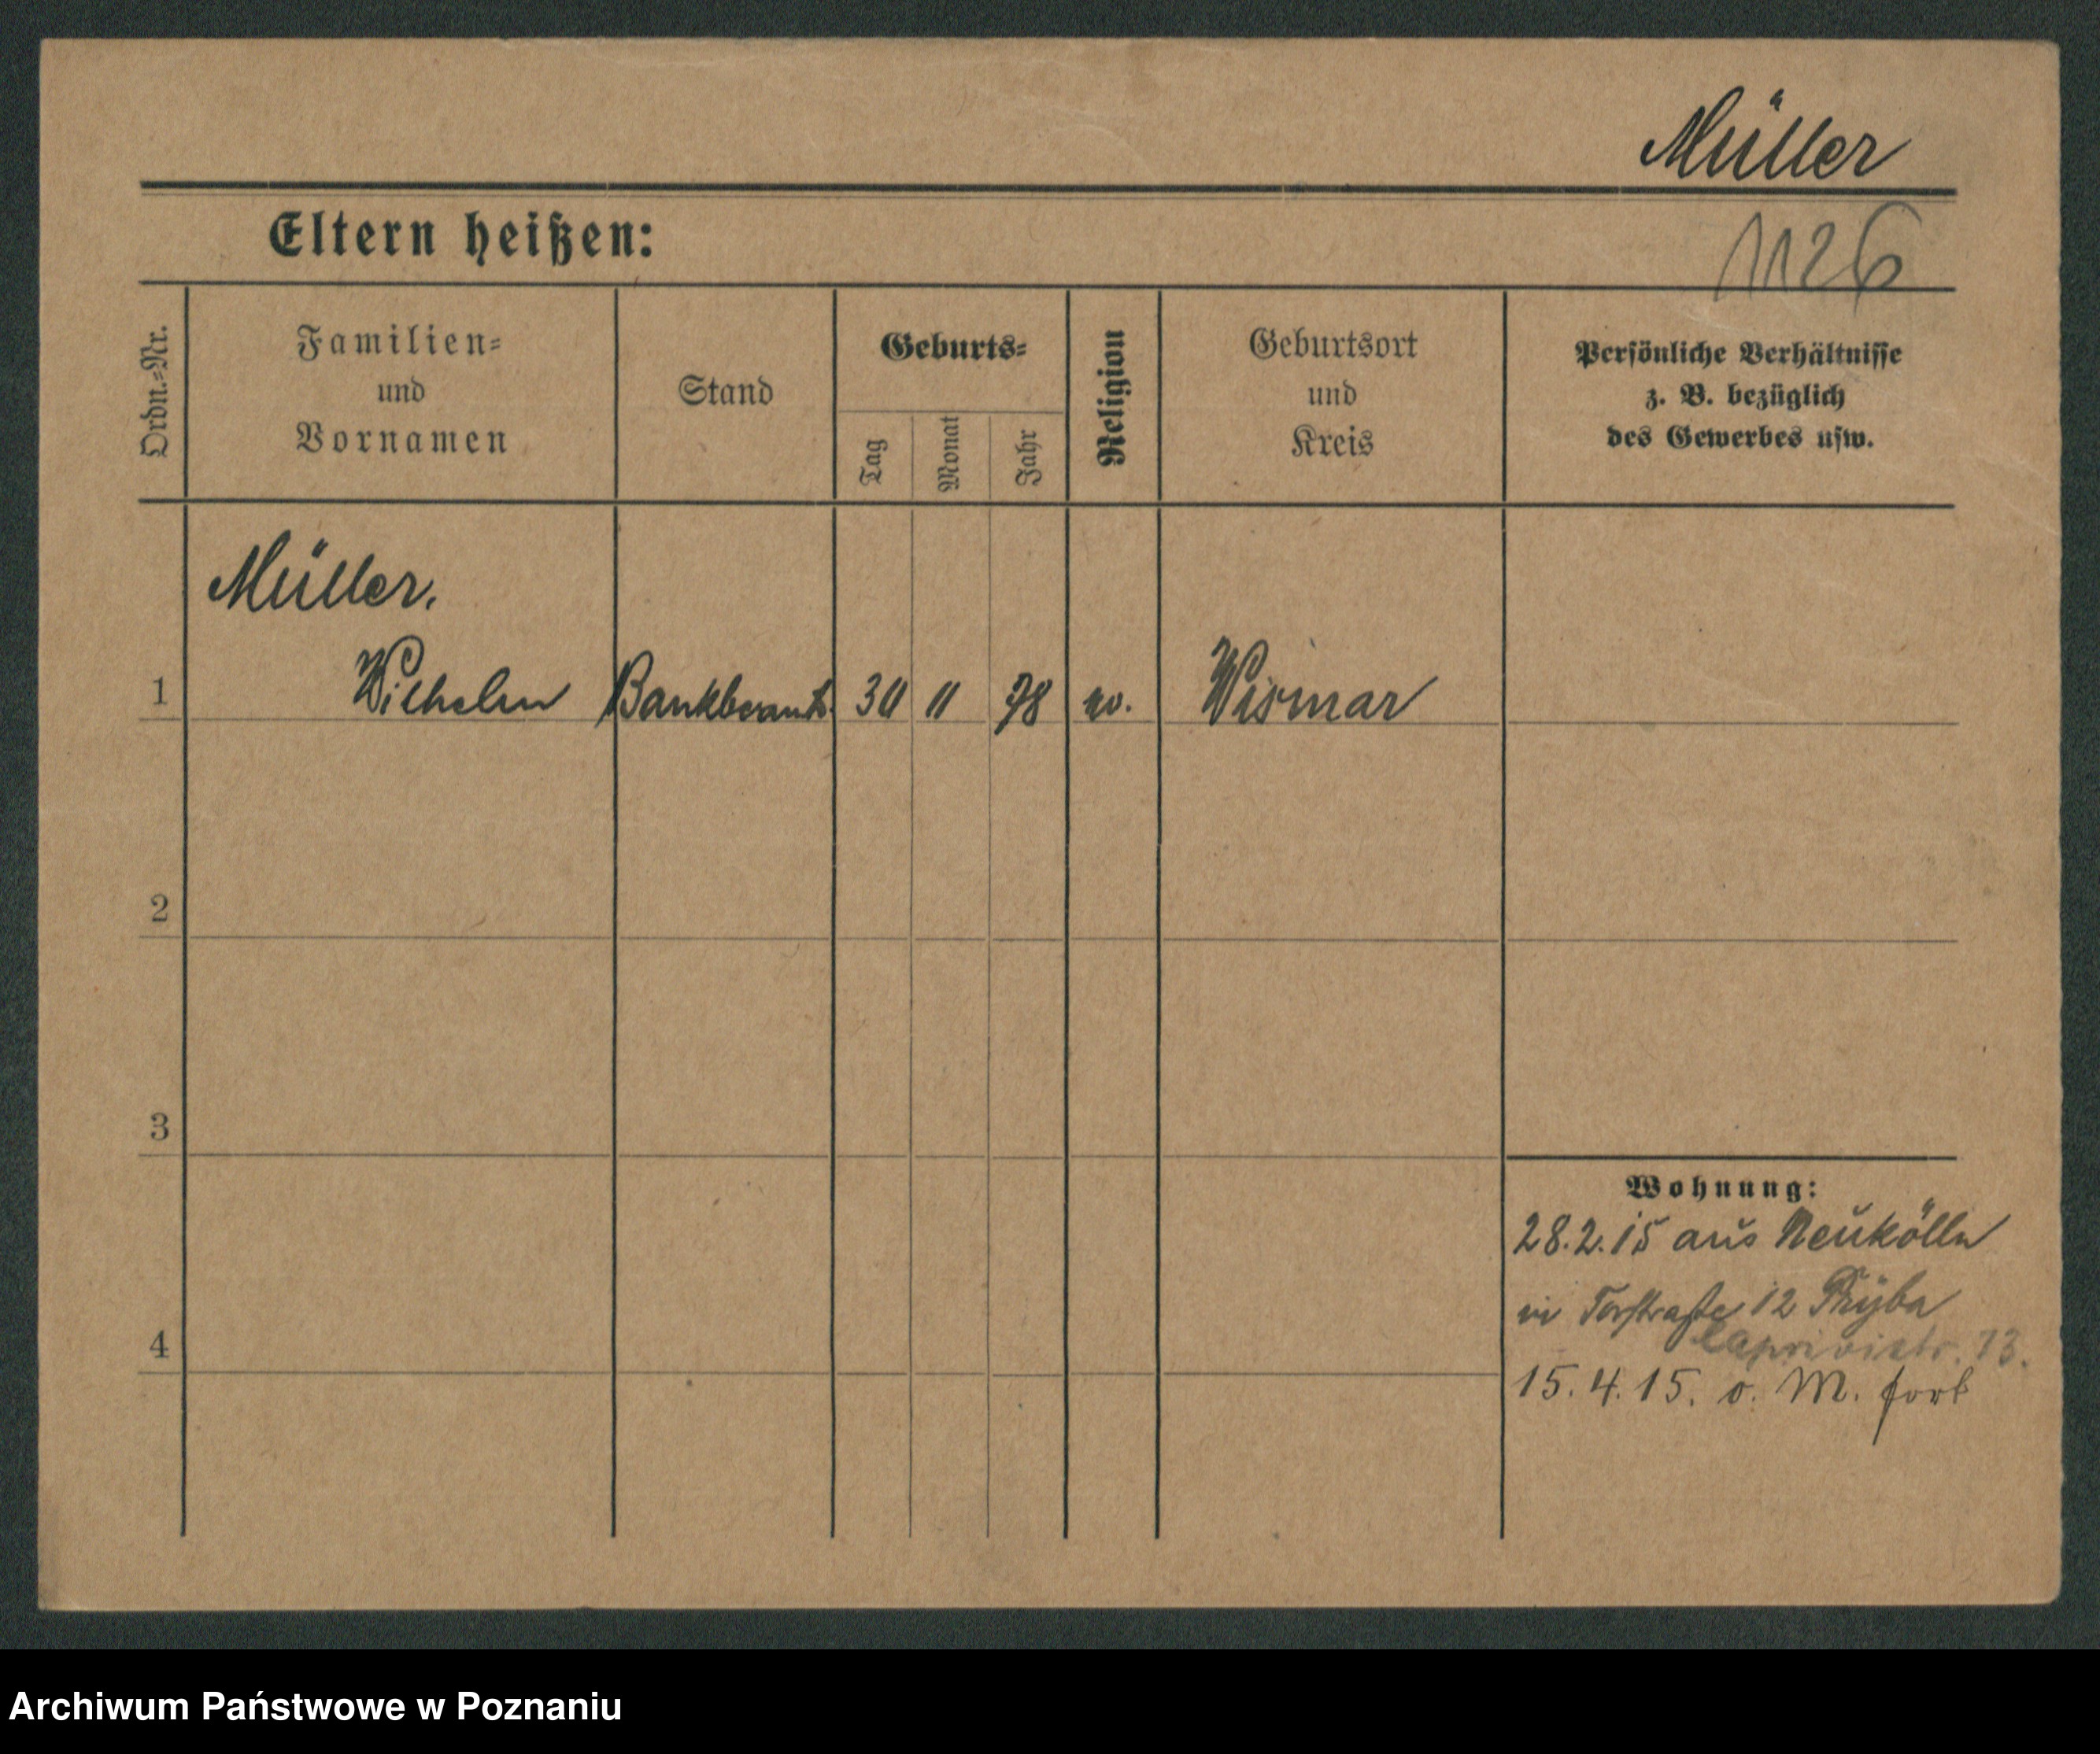 Müller
Eltern heißen:
1126
Ordn.=Nr.
Familien=
und
Vornamen
Stand
Geburts=
Tag
Monat
Jahr
Religion
Geburtsort
und
Kreis
Persönliche Verhältnisse
z. B. bezüglich
des Gewerbes usw.
Müller.
1 Wilhelm Bankbeamt. 30 11 78 Wismar
2
3
Wohnung:
28.2.15 aus Neukölln
in Torstraße 12
Caprivistr. 13.
4
15.4.15. o. M. fort
Archiwum Państwowe w Poznaniu